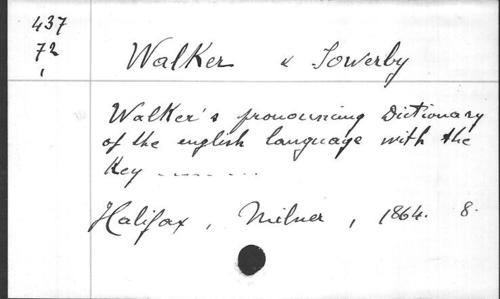 437
72
1
Walker & Sowerby
Walker's pronouncing Dictionary
of the english language with the
Key ...........
Halifax, Milner, 1864. 8.